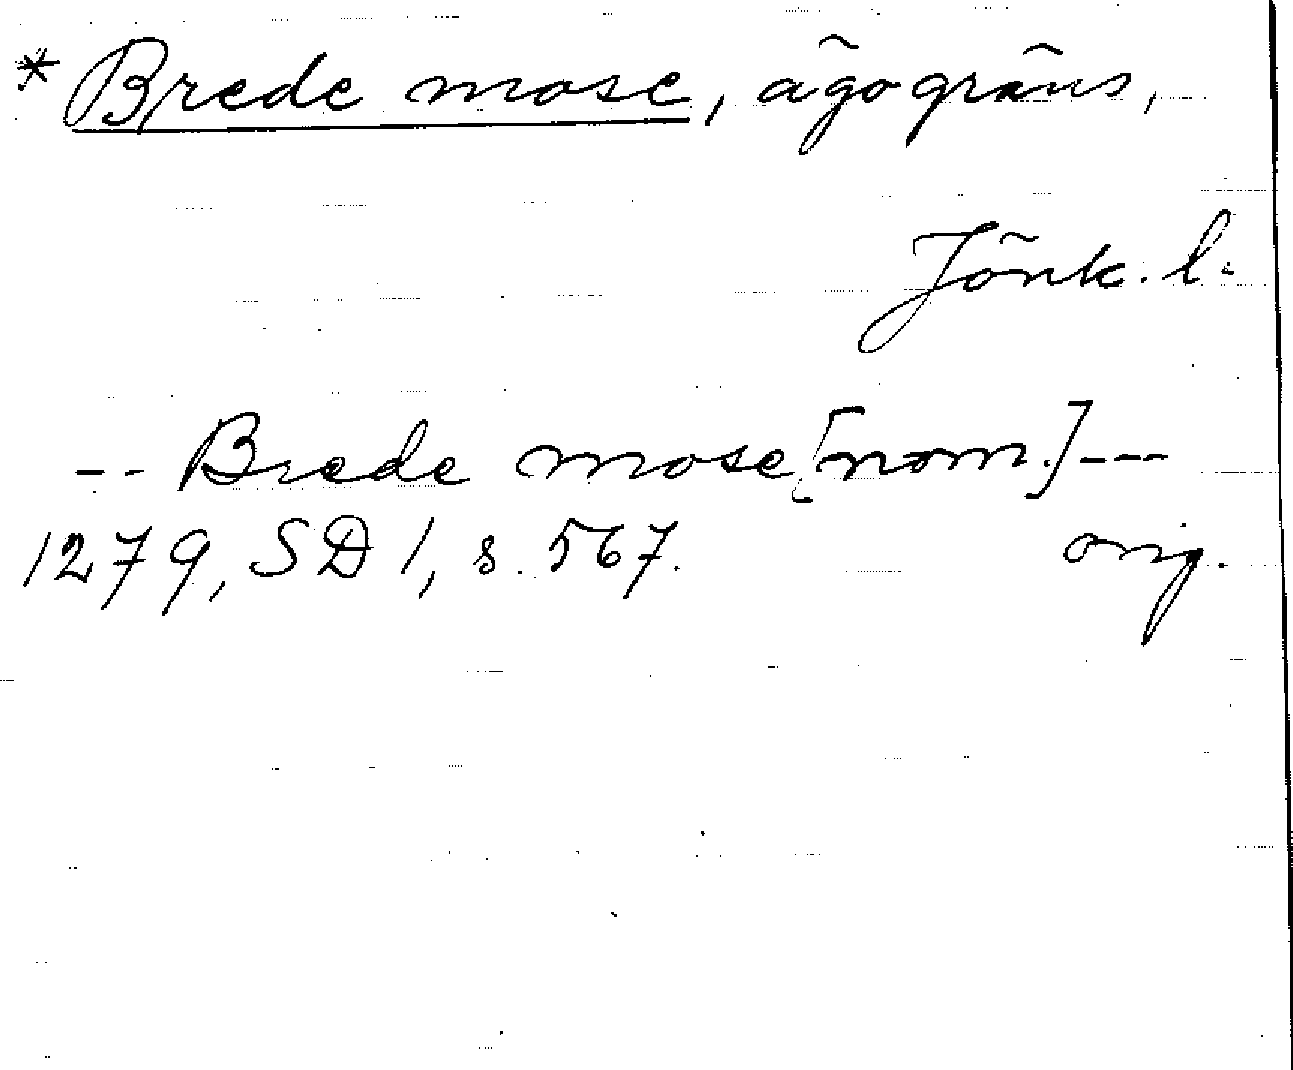 * Brede mose, ägogräns,
Jönk. l.
-- Brede mose [nom.] ---
1279, SD 1, s. 567. orig.